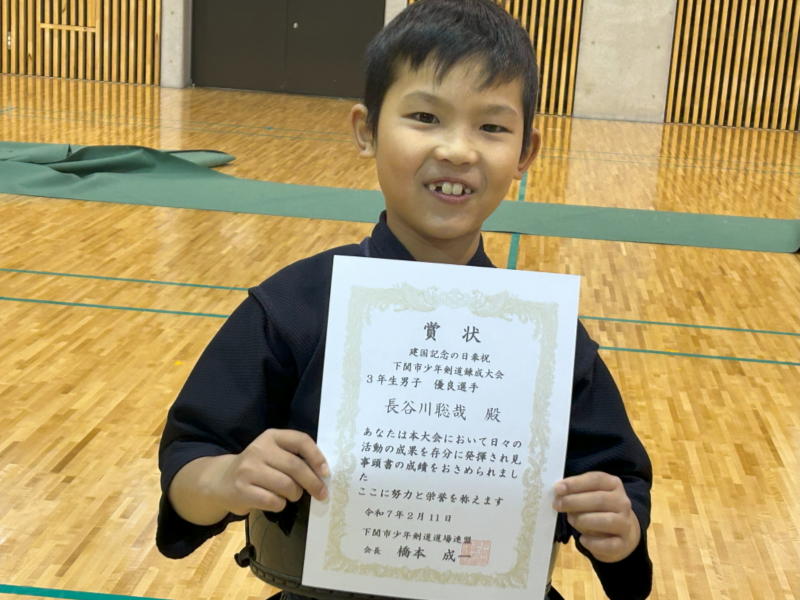 賞状
建国記念の日奉祝
下関市少年剣道錬成大会
3年生男子 優良選手
長谷川聡哉 殿
あなたは本大会において日々の
活動の成果を存分に発揮され見
事頭書の成績をおさめられまし
た
ここに努力と栄誉を称えます
令和7年2月11日
下関市少年剣道道場連盟
会長 橋本 成一